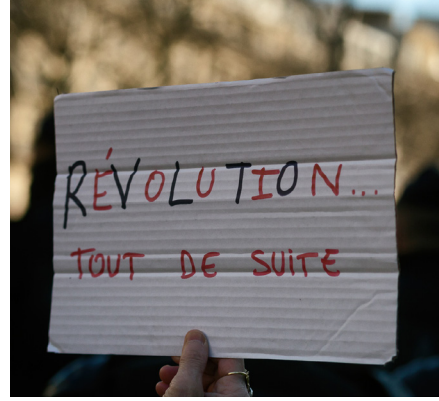 RÉVOLUTION...
TOUT DE SUITE